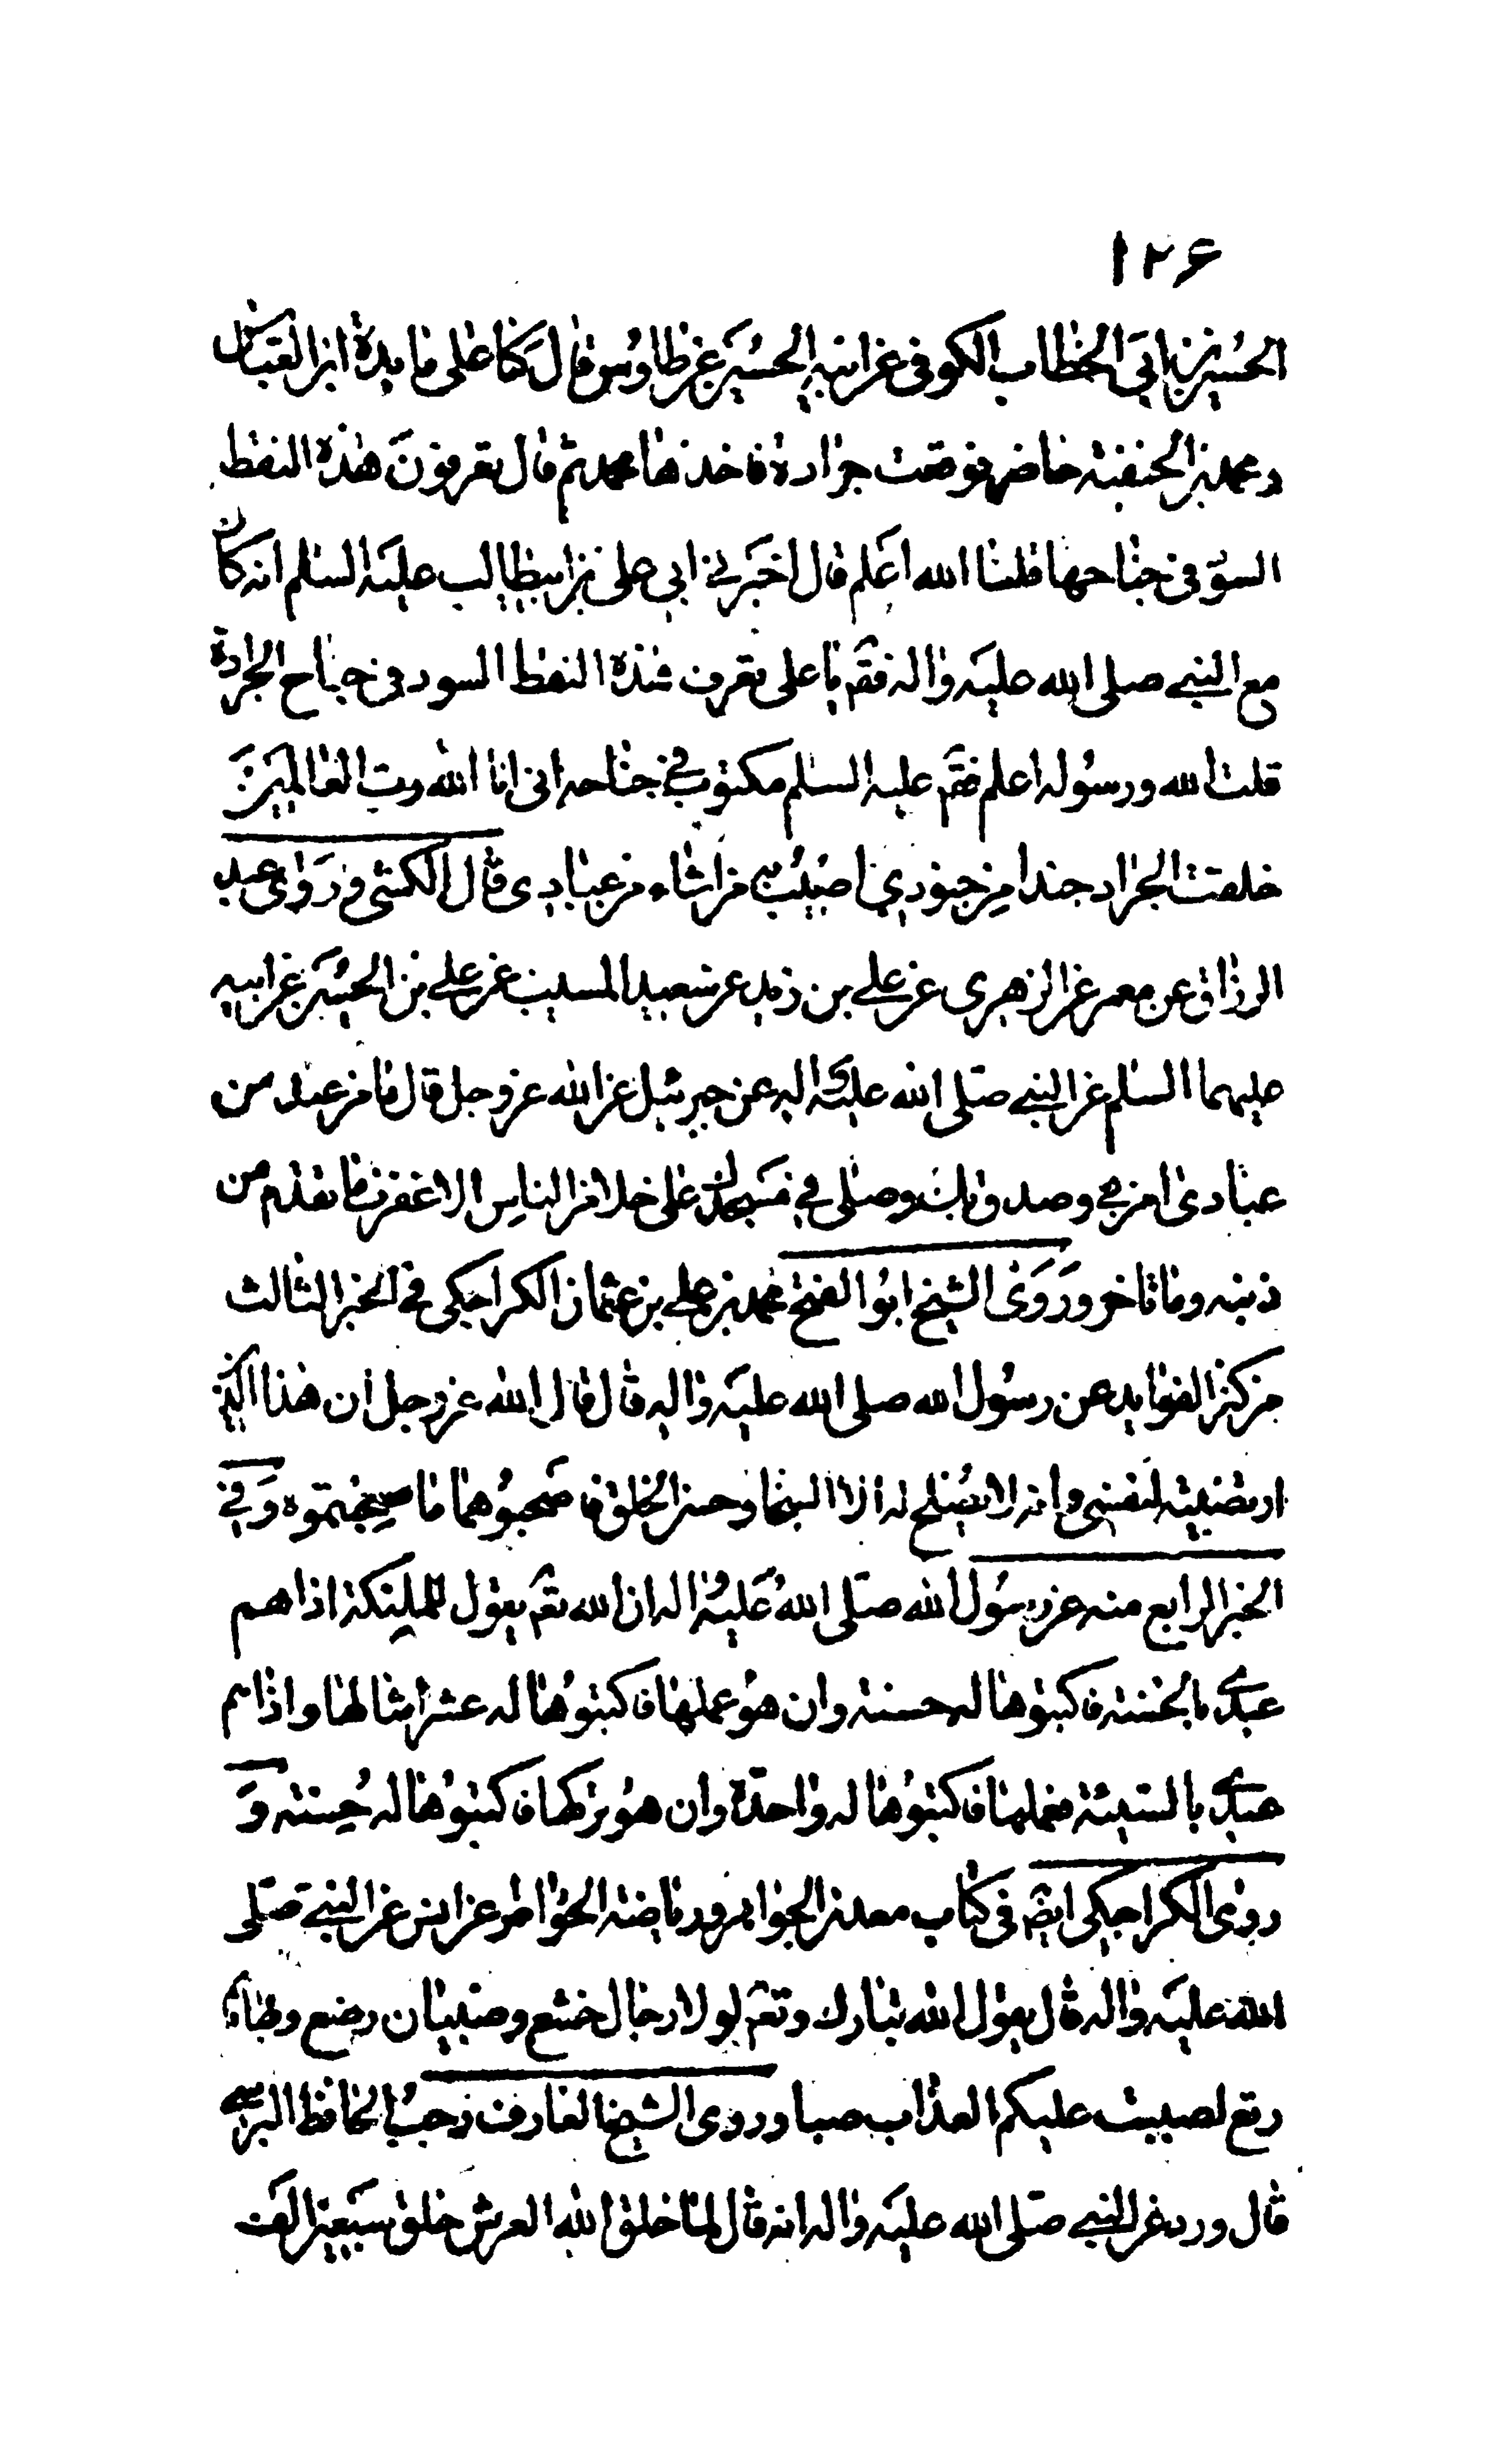 ١٢۶
الحسين بن ابي الخطاب الكوفي عن ابيه الحسين عن طاوس قال كنا على مائدة ابن العباس
ومحمد بن الحنفية حاضر فوقعت جرادة فاخذها محمد ثم قال تعرفون هذه النقط
السود في جناحها قلنا الله اعلم قال اخبرني ابي علي بن ابيطالب عليه السلام انه كان
مع النبي صلى الله عليه واله فقم يا علي تعرف هذه النقط السود في جناح الجرادة
قلت الله ورسوله اعلم فقم عليه السلم مكتوب في جناحه اني انا الله رب العالمين
خلقت الجراد جندا من جنودي اصيب به من اشاء من عبادي قال الكشي وروى عبد
الرزاق عن معمر عن الزهري عن علي بن زيد عن سعيد المسيب عن علي بن الحسين عن ابيه
عليهما السلم عن النبي صلى الله عليه واله عن جبرئيل عن الله عز وجل قال ما من عبد من
عبادي امن بي وصدق بك وصلى في مسجدك على خلا من الناس الا غفرت ما تقدم من
ذنبه وما تاخر وروى الشيخ ابو الفتح محمد بن علي بن عثمان الكراجكي في الخبر الثالث
من كنز الفوايد عن رسول الله صلى الله عليه واله قال قال الله عز وجل ان هذا الدين
ارتضيته لنفسي وانه لا يصلح له الا السخا وحسن الخلق فاصحبوهما ما صحبتموه وفي
الخبر الرابع منه عن رسول الله صلى الله عليه واله ان الله تعم يقول للمليكة اذا هم
عبدي بالحسنة فاكتبوها له حسنة وان هو عملها فاكتبوها له عشر امثالها واذا هم
عبدي بالسيئة فعملها فاكتبوها له واحدة وان هو تركها فاكتبوها له حسنة و
روى الكراجكي ايضم في كتاب معدن الجواهر ورياضة الخواطر عن انس عن النبي صلى
الله عليه واله قال يقول الله تبارك وتعم لولا رجال خشع وصبيان رضع وبهائم
رتع لصببت عليكم العذاب صبا وروى الشيخ العارف رجب الحافظ البرسي
قال ورد عن النبي صلى الله عليه واله انه قال لما خلق الله العرش خلق سبعين الف